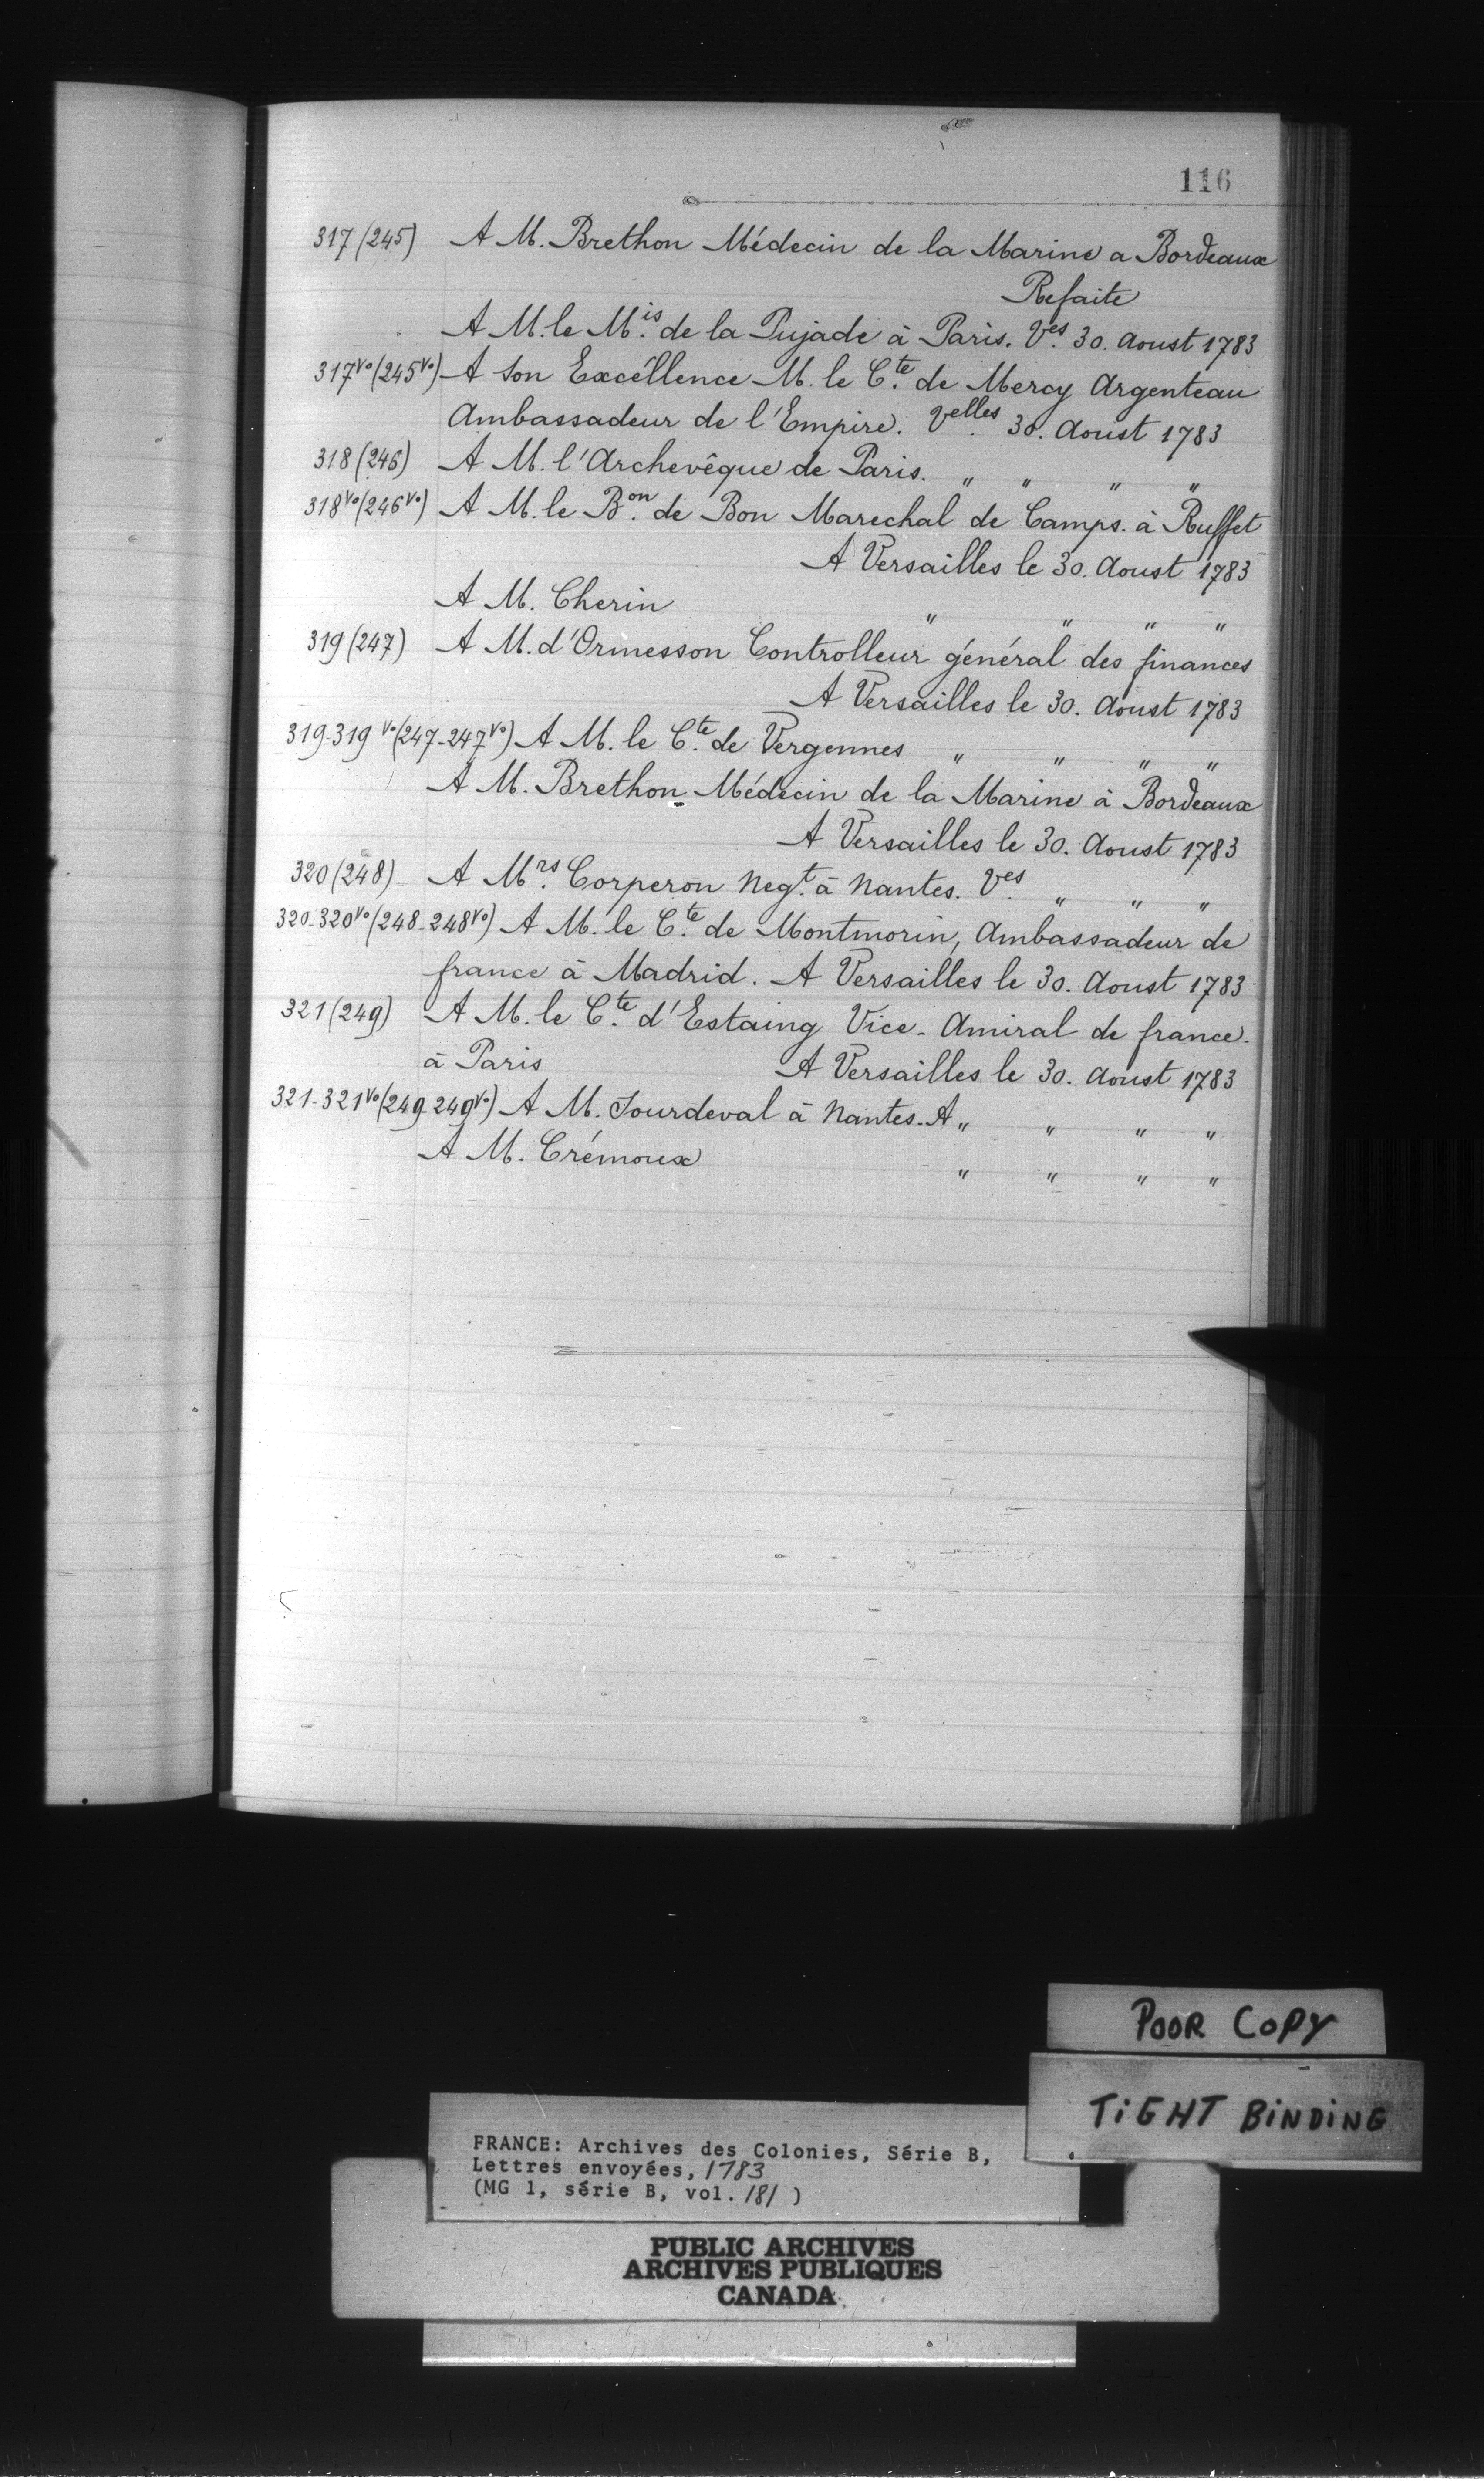 116
317 (245) A M. Brethon Médecin de la Marine a Bordeaux
Refaite
A M. le M.is de la Pujade à Paris. V.es 30. Aoust 1783
317 vo (245 vo) A Son Excéllence M. le C.te de Mercy Argenteau
Ambassadeur de l'Empire. Velles. 30. Aoust 1783
318 (246) A M. l'Archevêque de Paris. " " " "
318 vo (246 vo) A M. le B.on de Bon Marechal de Camps. à Ruffet
A Versailles le 30. Aoust 1783
A M. Cherin " " " "
319 (247) A M. d'Ormesson Controlleur général des finances
A Versailles le 30. Aoust 1783
319-319 vo (247-247 vo) A M. le C.te de Vergennes " " " "
A M. Brethon Médecin de la Marine à Bordeaux
A Versailles le 30. Aoust 1783
320 (248) A M.rs Corperon Neg.t à Nantes. V.es " " "
320-320 vo (248-248 vo) A M. le C.te de Montmorin, Ambassadeur de
france à Madrid. A Versailles le 30. Aoust 1783
321 (249) A M. le C.te d'Estaing Vice-Amiral de france.
à Paris A Versailles le 30. Aoust 1783
321-321 vo (249-249 vo) A M. Sourdeval à Nantes. A " " " "
A M. Crémoux " " " "
POOR COPY
TIGHT BINDING
FRANCE: Archives des Colonies, Série B,
Lettres envoyées, 1783
(MG 1, série B, vol. 181 )
PUBLIC ARCHIVES
ARCHIVES PUBLIQUES
CANADA